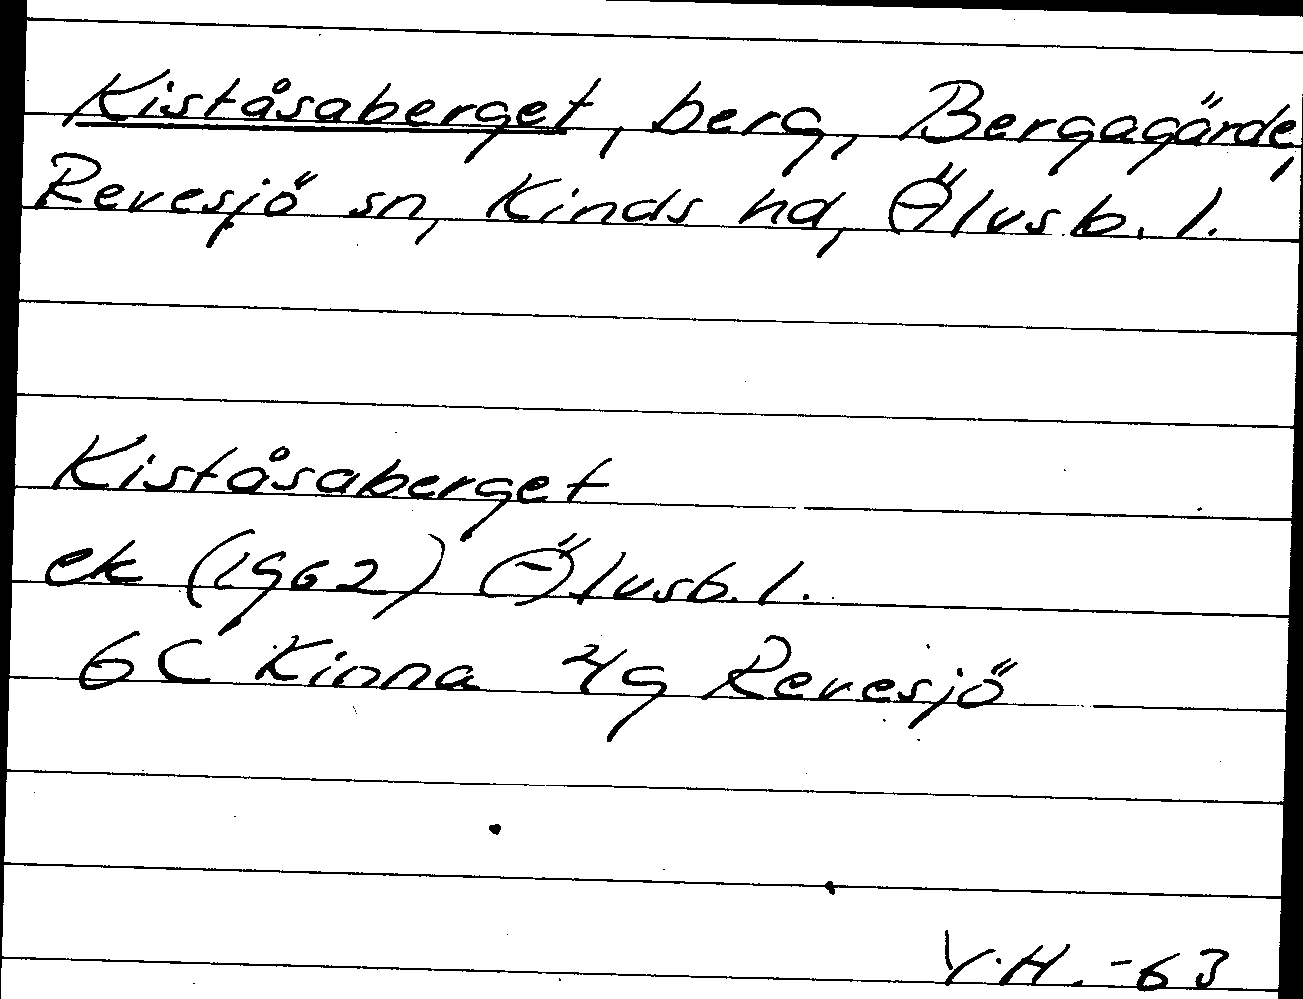 Kiståsaberget, berg, Bergagärde,
Revesjö sn, Kinds hd, Älvsb. l.
Kiståsaberget
ek (1962) Älvsb. l.
6C Kinna 4g Revesjö
Y.H. -63